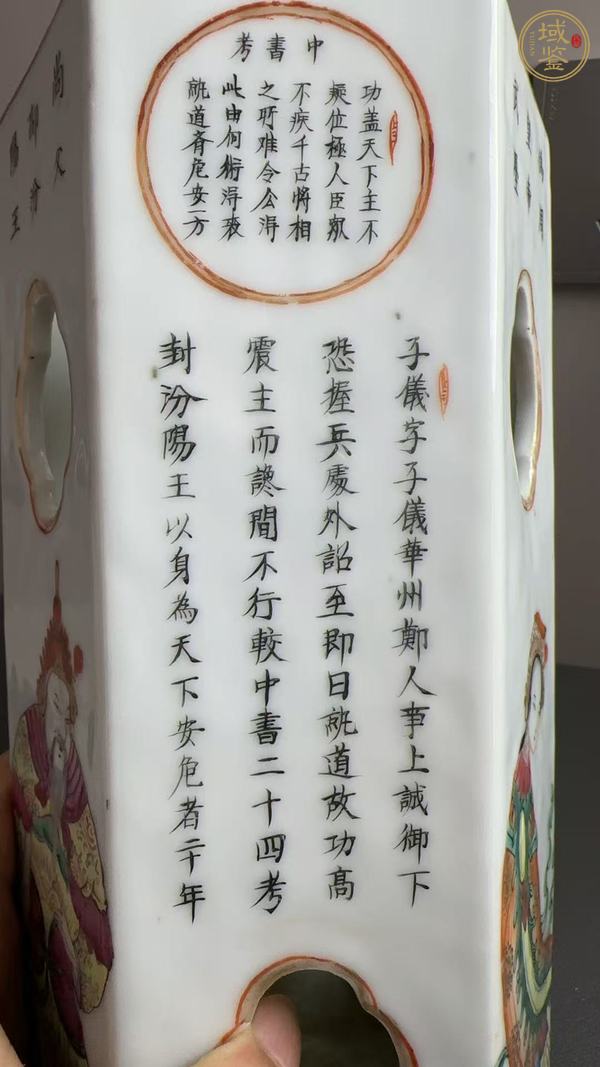 域鉴
YUJIAN
中書考
功蓋天下主不
疑位極人臣眾
不疾千古將相
之所難令公得
此由何術得哉
就道齊危安一方
子儀字子儀華州鄭人事上誠御下
恕握兵處外詔至即日就道故功高
震主而讒間不行較中書二十四考
封汾陽王以身為天下安危者二十年
尚父
汾
陽王
周
皇帝
武曌